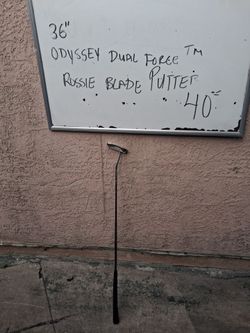 36"
ODYSSEY DUAL FORCE TM
ROSSIE BLADE PUTTER
40"